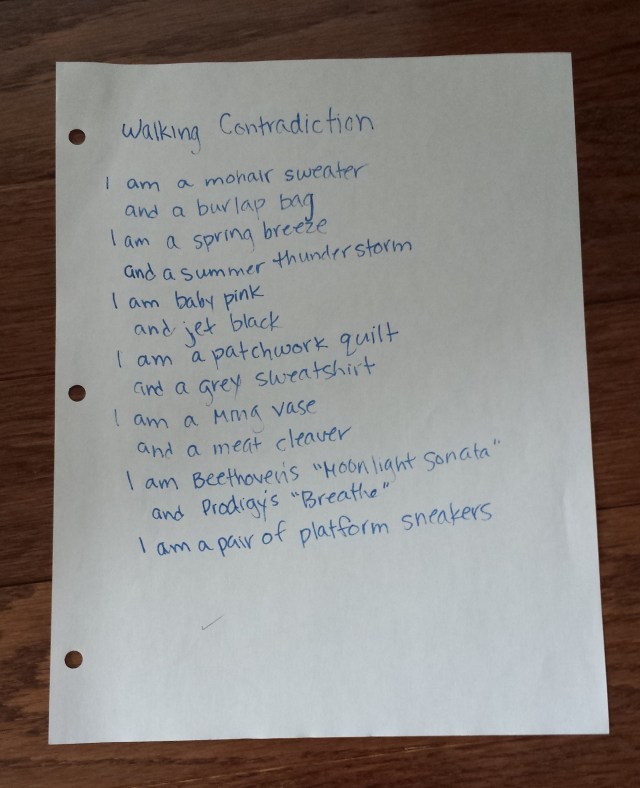 Walking Contradiction
I am a mohair sweater
and a burlap bag
I am a spring breeze
and a summer thunderstorm
I am baby pink
and jet black
I am a patchwork quilt
and a grey sweatshirt
I am a Ming vase
and a meat cleaver
I am Beethoven's "Moonlight Sonata"
and Prodigy's "Breathe"
I am a pair of platform sneakers